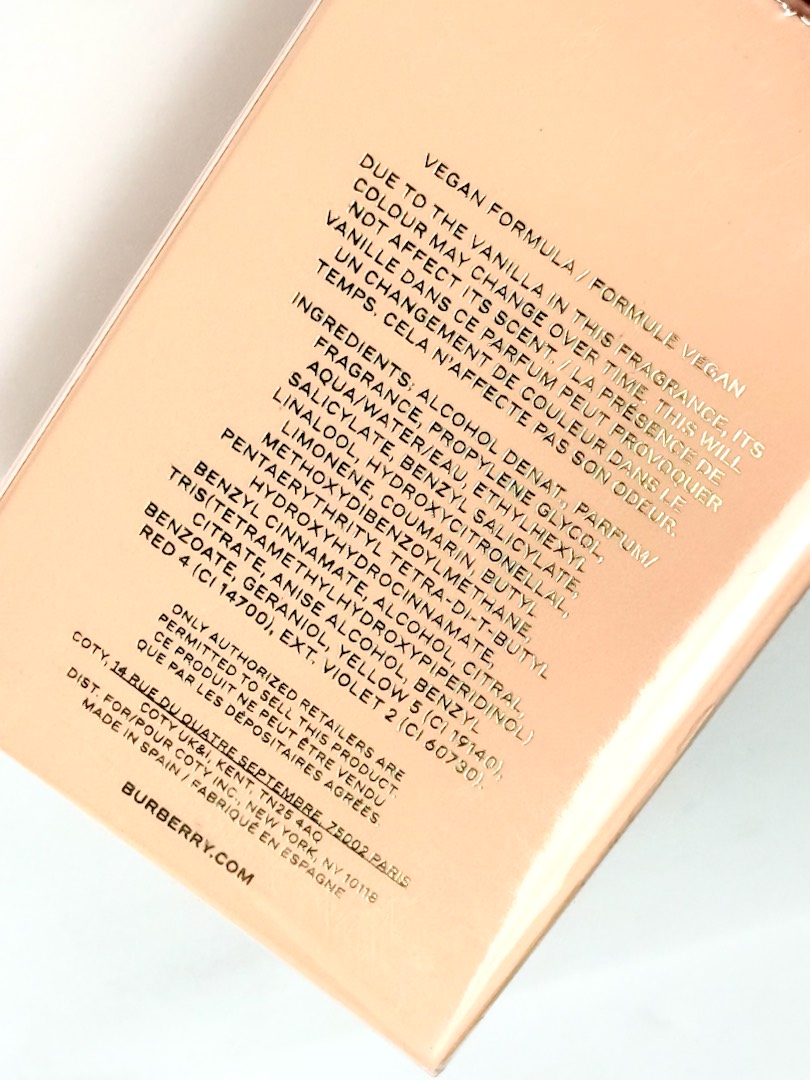 VEGAN FORMULA / FORMULE VEGAN
DUE TO THE VANILLA IN THIS FRAGRANCE, ITS
COLOUR MAY CHANGE OVER TIME. THIS WILL
NOT AFFECT ITS SCENT. / LA PRÉSENCE DE
VANILLE DANS CE PARFUM PEUT PROVOQUER
UN CHANGEMENT DE COULEUR DANS LE
TEMPS. CELA N'AFFECTE PAS SON ODEUR.
INGREDIENTS: ALCOHOL DENAT., PARFUM/
FRAGRANCE, PROPYLENE GLYCOL,
AQUA/WATER/EAU, ETHYLHEXYL
SALICYLATE, BENZYL SALICYLATE,
LINALOOL, HYDROXYCITRONELLAL,
LIMONENE, COUMARIN, BUTYL
METHOXYDIBENZOYLMETHANE,
PENTAERYTHRITYL TETRA-DI-T-BUTYL
HYDROXYHYDROCINNAMATE,
BENZYL CINNAMATE, ALCOHOL, CITRAL,
TRIS(TETRAMETHYLHYDROXYPIPERIDINOL)
CITRATE, ANISE ALCOHOL, BENZYL
BENZOATE, GERANIOL, YELLOW 5 (CI 19140),
RED 4 (CI 14700), EXT. VIOLET 2 (CI 60730).
ONLY AUTHORIZED RETAILERS ARE
PERMITTED TO SELL THIS PRODUCT.
CE PRODUIT NE PEUT ÊTRE VENDU
QUE PAR LES DÉPOSITAIRES AGRÉÉS.
COTY, 14 RUE DU QUATRE SEPTEMBRE, 75002 PARIS
COTY UK&I, KENT, TN25 4AQ
DIST. FOR/POUR COTY INC., NEW YORK, NY 10118
MADE IN SPAIN / FABRIQUÉ EN ESPAGNE
BURBERRY.COM